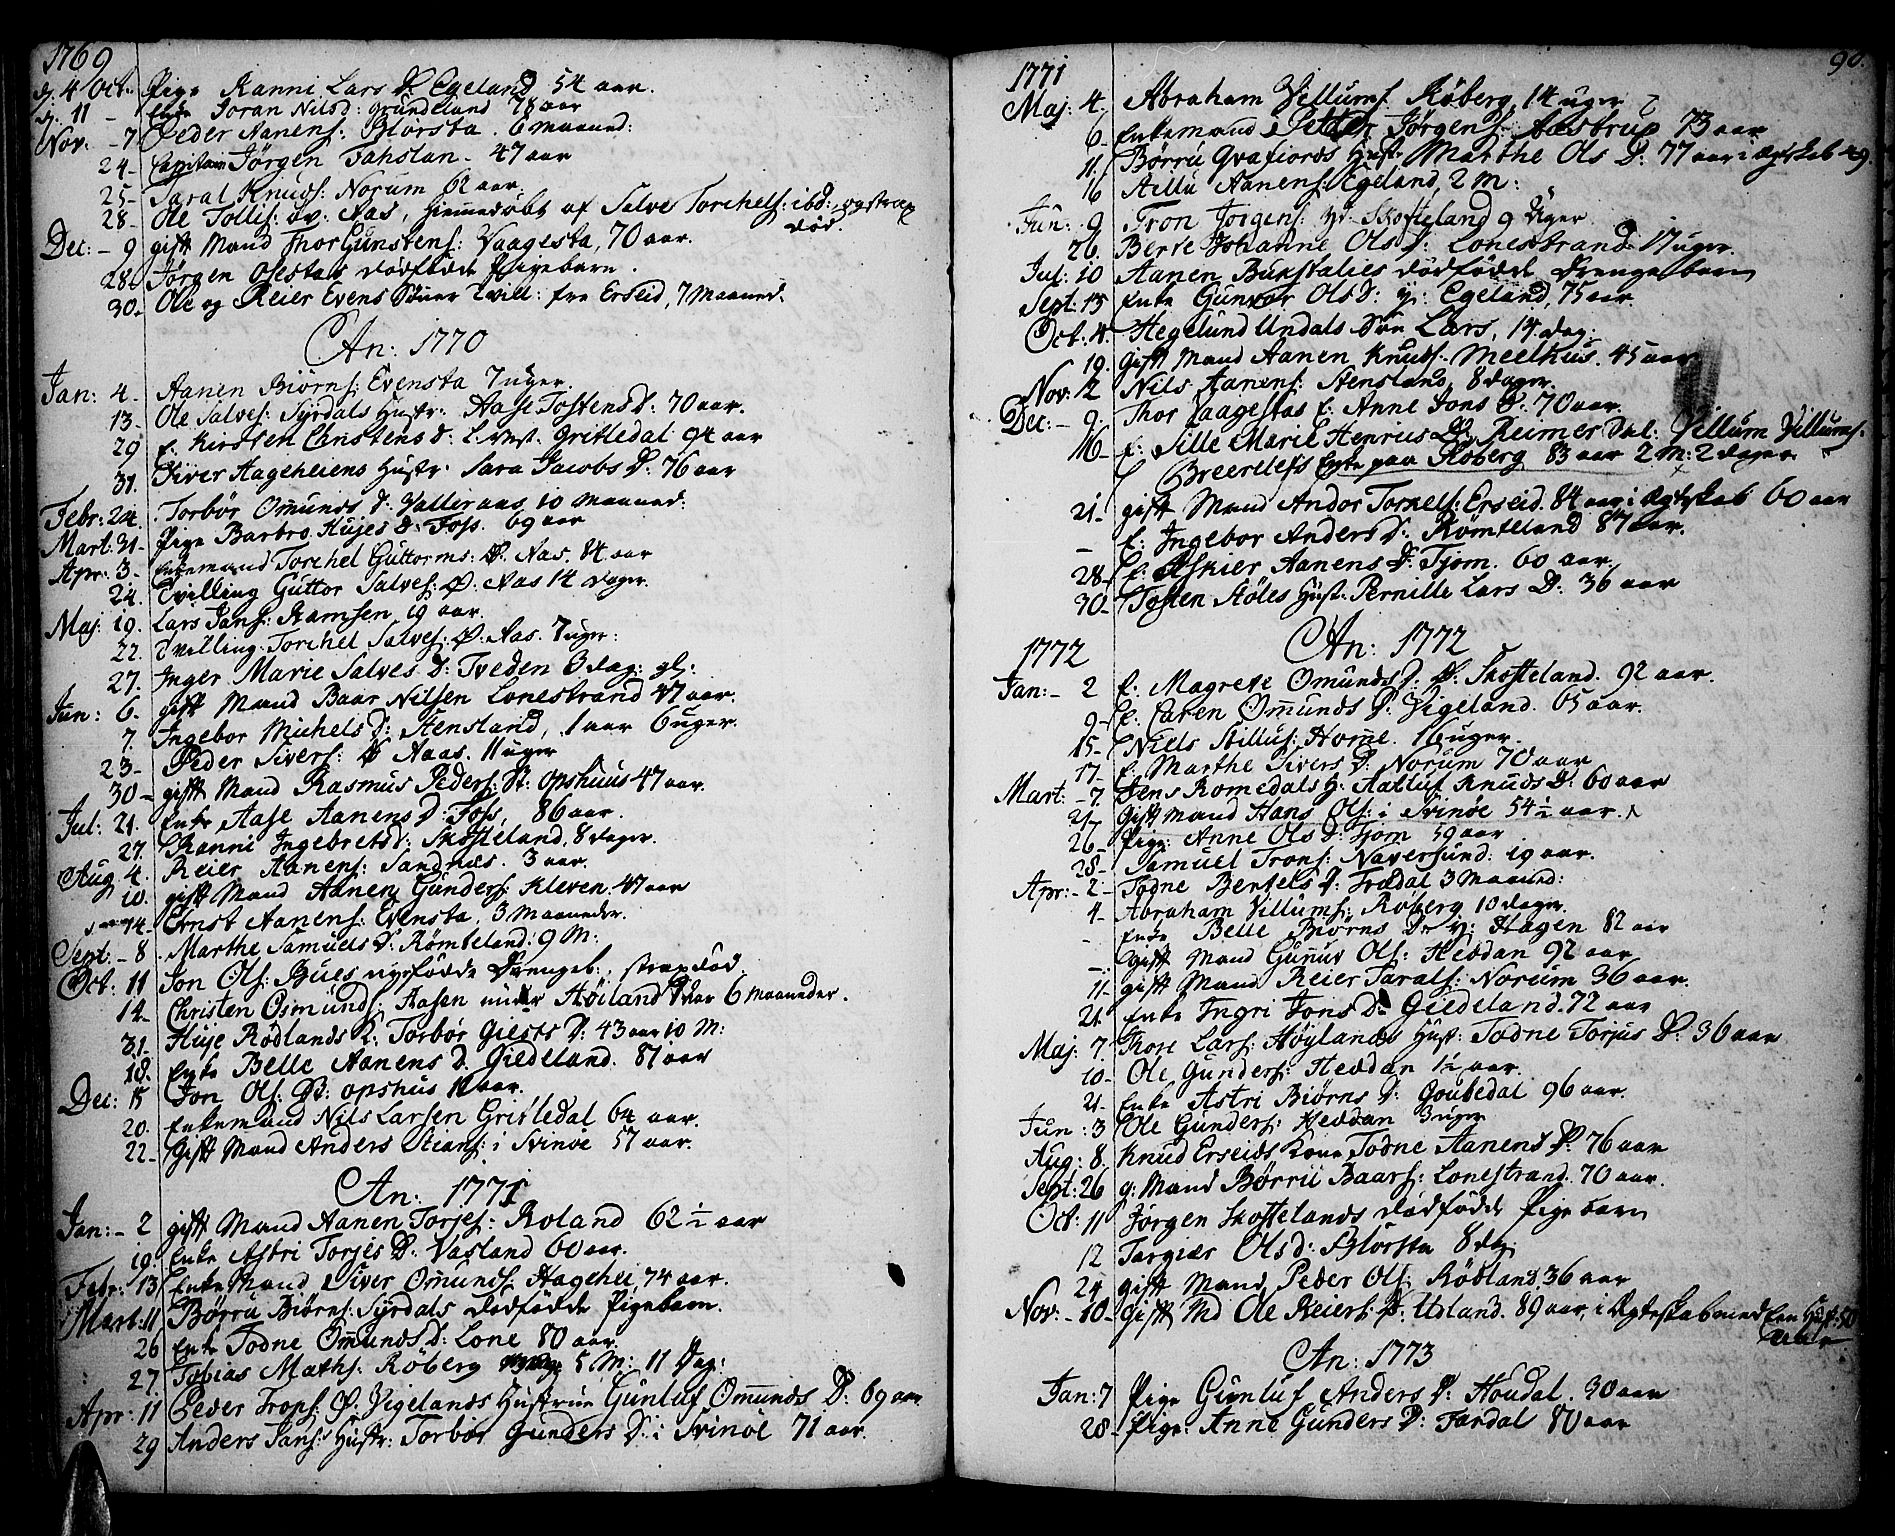 1769
d. 4 Oct: Pige Ranni Lars D. Egeland 54 aar.
d. 11 - Enke Joran Nilsd: Grundeland 78 aar
Nov: - 7 Peder Aanens: Blørsta. 6 Maaned:
24- Capitain Jørgen Fahslan- 47 aar
25- Taral Knuds: Norum 62 aar.
28- Ole Tollis: øv: Aas, hiemmedøbt af Salve Torchels: ibd: og strax
død.
Dec: - 9 gift Mand Thor Gunstens: Vaagesta, 70 aar.
28. Jørgen Ofestas dødfødde Pigebarn.
30. Ole og Reier Evens Sønner Tvill: fra Erseid, 7 Maaned.
An: 1770
Jan: 4. Aanen Biørns: Evensta 7 uger.
13. Ole Salves: Syrdals Hustr: Aase Tostensd: 70 aar.
29 E. Kirsten Christens d: Gritledal 94 aar
31. Siver Hageheiens Hustr. Sara Jacobs D: 76 aar
Febr: 24. Torbor Omunds d: Valleraas 10 Maaned:
Mart: 31- Pige Barbro Hujes D: Foss. 69 aar
Apr: 3- Enkemand Torchel Guttorms: Ø. Aas. 84 aar
24. Tvilling Guttor Salves: Ø. Aas 14 dager.
Maj: 19. Lars Jans: Ramsen 19 aar.
22. Tvilling Torchel Salves: Ø. Aas. 7 uger:
27. Inger Marie Salves D: Tveden 3 dag: gl:
Jun: 6. gift Mand Baar Nilsen Lonestrand 47 aar.
7. Ingebor Michels D: Stensland, 1 aar 6 uger.
23- Peder Sivers: Ø Aaas. 11 uger
30- gift Mand Rasmus Peders: St: Opshuus 47 aar.
Jul: 21. Enke Aase Aanens D: Foss, 86 aar.
27. Ranni Ingebretsd: Skofteland, 8 dager.
Aug 4. Reier Aanens: Sandnæs. 3 aar.
10. gift Mand Aanen Gunders: Kleven 47 aar
14- Ernst Aanens: Evensta, 3 Maaneder.
Sept: - 8. Marthe Samuels D: Rømteland: 9 M:
Oct: 11 Jon Ols: Bues nyefødde Drengeb: strax død.
14- Christen Osmunds: Aasen under Høiland 6 Maaneder.
31. Huje Rødlands K: Torbor Giests D: 43 aar 10 M:
18. Enke Belle Aanens D. Giedeland. 87 aar
Dec: 15 Jon Ols: Opshus 11 aar.
20. Enkemand Nils Larsen Gritledal 64 aar.
22- Gift Mand Anders Steans: i Svinøe 57 aar.
An: 1771
Jan: - 2 gift Mand Aanen Torjes: Roland 62 ½ aar
19. Enke Astri Torjes D: Vasland 60 aar.
Febr: 13 Enke Mand Siver Omunds: Hagehei, 74 aar.
Mart: 11 Børru Biørns: Syrdals dødfødde Pigebarn.
26 Enke Todne Omunds D: Lone 80 aar.
27. Tobias Maths: Røberg 5 M: 11 Dag:
Apr: 11 Peder Trons: Ø. Vigelands Hustrue Gunluf Omunds D: 69 aar
29 Anders Jans: Hustr: Torbor Gunders D: i Svinøe 71 aar.
90.
1771
Maj: 4. Abraham Villums: Røberg, 14 uger
6- Enkemand Petter Jørgens: Aastrup 73 aar
11. Børru Qvafiords Hust: Marthe Ols D: 77 aar i Ægteskab 49.
16 Aillu Aanens: Egeland, 2 M:
Jun: 9 Tron Jorgens: yt. Skofteland 9 Uger
26. Berte Johanne Ols D: Lonestrand: 17 uger.
Jul: 10 Aanen Bukstalies dødfødde Drengebarn
Sept: 15 Enke Gunvor Olsd: y: Egeland, 75 aar.
Oct: 4. Hegelund Undals Søn Lars, 14 dag:
19. Gift Mand Aanen Knuds: Meelhus. 45 aar
Nov: 12 Nils Aanens: Stensland, 8 dager.
Dec: - 9. Thor Vaagestas E: Anne Jons D. 70 aar.
16- E: Sille Marie Henrics D. Reimer Vill: Villum Villums:
Breertless Enke paa Røberg 83 aar 2 M: 2 dager
21- gift Mand Andor Torkels: Erseid. 84 aar i Ægteskab 60 aar
- E: Ingebor Anders D: Rømteland 87 aar.
28- E: Askier Aanens D: Tjom. 60 aar.
30- Tosten Støles Hust: Pernille Lars D: 36 aar
An: 1772
1772
Jan: - 2 E: Magrete Omunds D. Ø. Skofteland. 92 aar.
9- E: Caren Omunds D: Vigeland. 65 aar.
15- Niels Stillufs: Horne. 16 uger.
17- E: Marthe Sivers D: Norum 70 aar
Mart: - 7. Jens Romedals H: Aatluf Knuds D: 60 aar
21- Gift Mand Hans Ols: i Svinøe 54 ½ aar.
26- Pige Anne Ols D: Tjom 59 aar
28- Samuel Trons: Naversund: 19 aar.
Apr: - 2- Todne Bentels D: Trædal 3 Maaned:
4- Abraham Villums: Røberg 10 dager.
- Enke Belle Biørns D: y: Hagen 82 aar
- Gift Mand Gunnu Ols: Heddan 92 aar
11- gift Mand Reier Tarals: Norum 36 aar.
21. Enke Ingri Jons D: Giedeland. 72 aar
Maj: 7. Thore Lars: Høylands Hust: Todne Torjus D: 36 aar
10- Ole Gunders: Heddan 1½ aar.
21- Enke Astri Biørns D: Goubedal 96 aar.
Jun: 3 Ole Gunders: Heddan 3 uger
Aug: 8. Knud Erseids Kone Todne Aanens D: 76 aar
Sept: 26 g: Mand Børru Baars: Lonestrand. 70 aar.
Oct: 11 Jørgen Skoftelands dødfødde Pige barn
12 Targier Olsd: Blørsta 8 dag:
24 gift Mand Peder Ols: Rødland 36 aar
Nov: - 10- gift Md Ole Reiers: Ø. Udland. 89 aar, i Ægteskab med Een Hust: 50
aar
An: 1773
Jan: 7 Pige Gunluf Anders D: Houdal. 30 aar
28- Pige Anne Gunders D: Fardal 80 aar